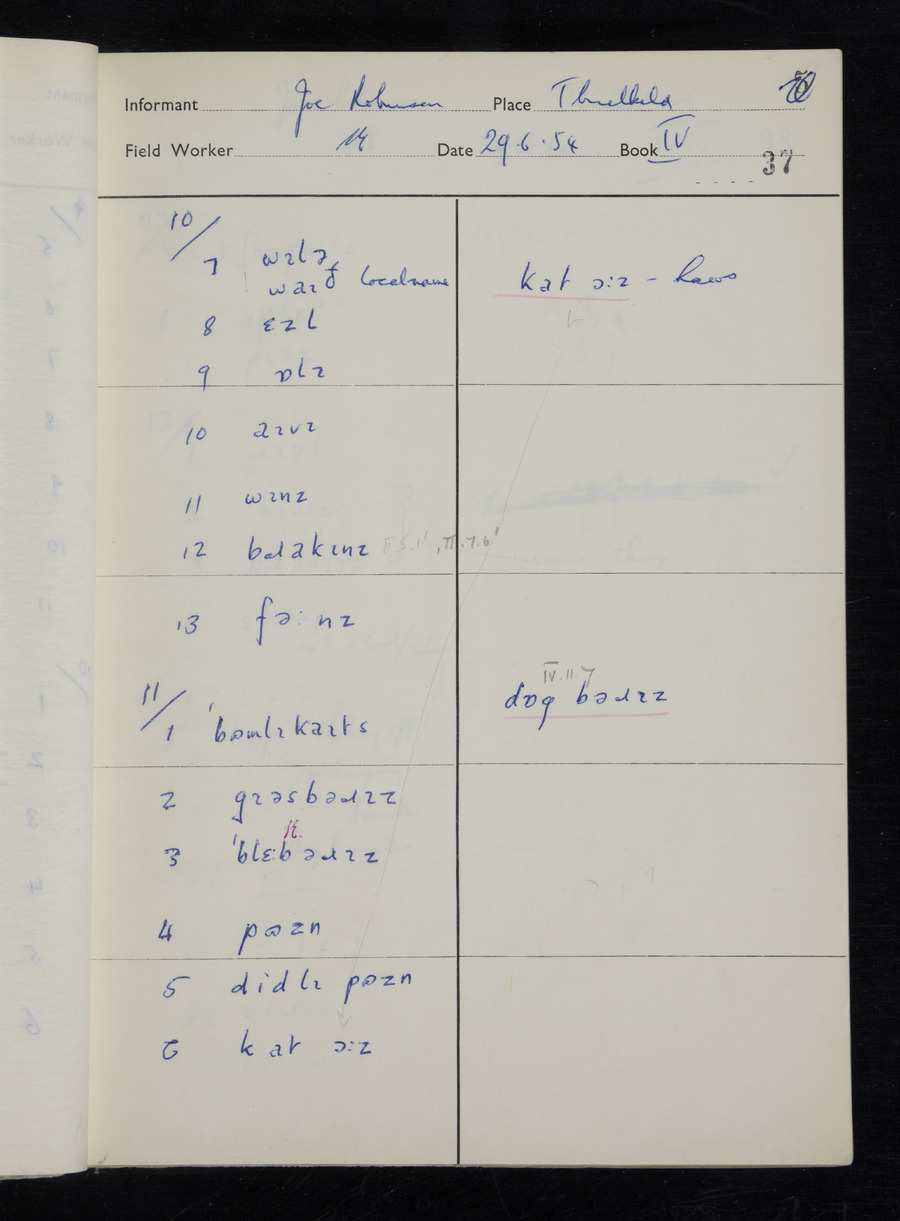 Informant Joe Robinson Place Threlkeld
Field Worker Date 29·6·54 Book IV
37
10/
7 wɪlə
waɪð localname
kat ɔːz – haws
8 ɛzl
9 ɒlɪ
10 aɪvɪ
11 wɪnz
12 bɹakɪnz II.5.1', II.7.6'
13 fəːnz
IV.11.7
dɒg bəɹɪz
11/
1 'bʊmlɪkaɪts
2 gɹəsbəɹɪz
3 'blɛːbəɹɪz
4 pʊzn
5 didlɪ pʊzn
6 kat ɔːz